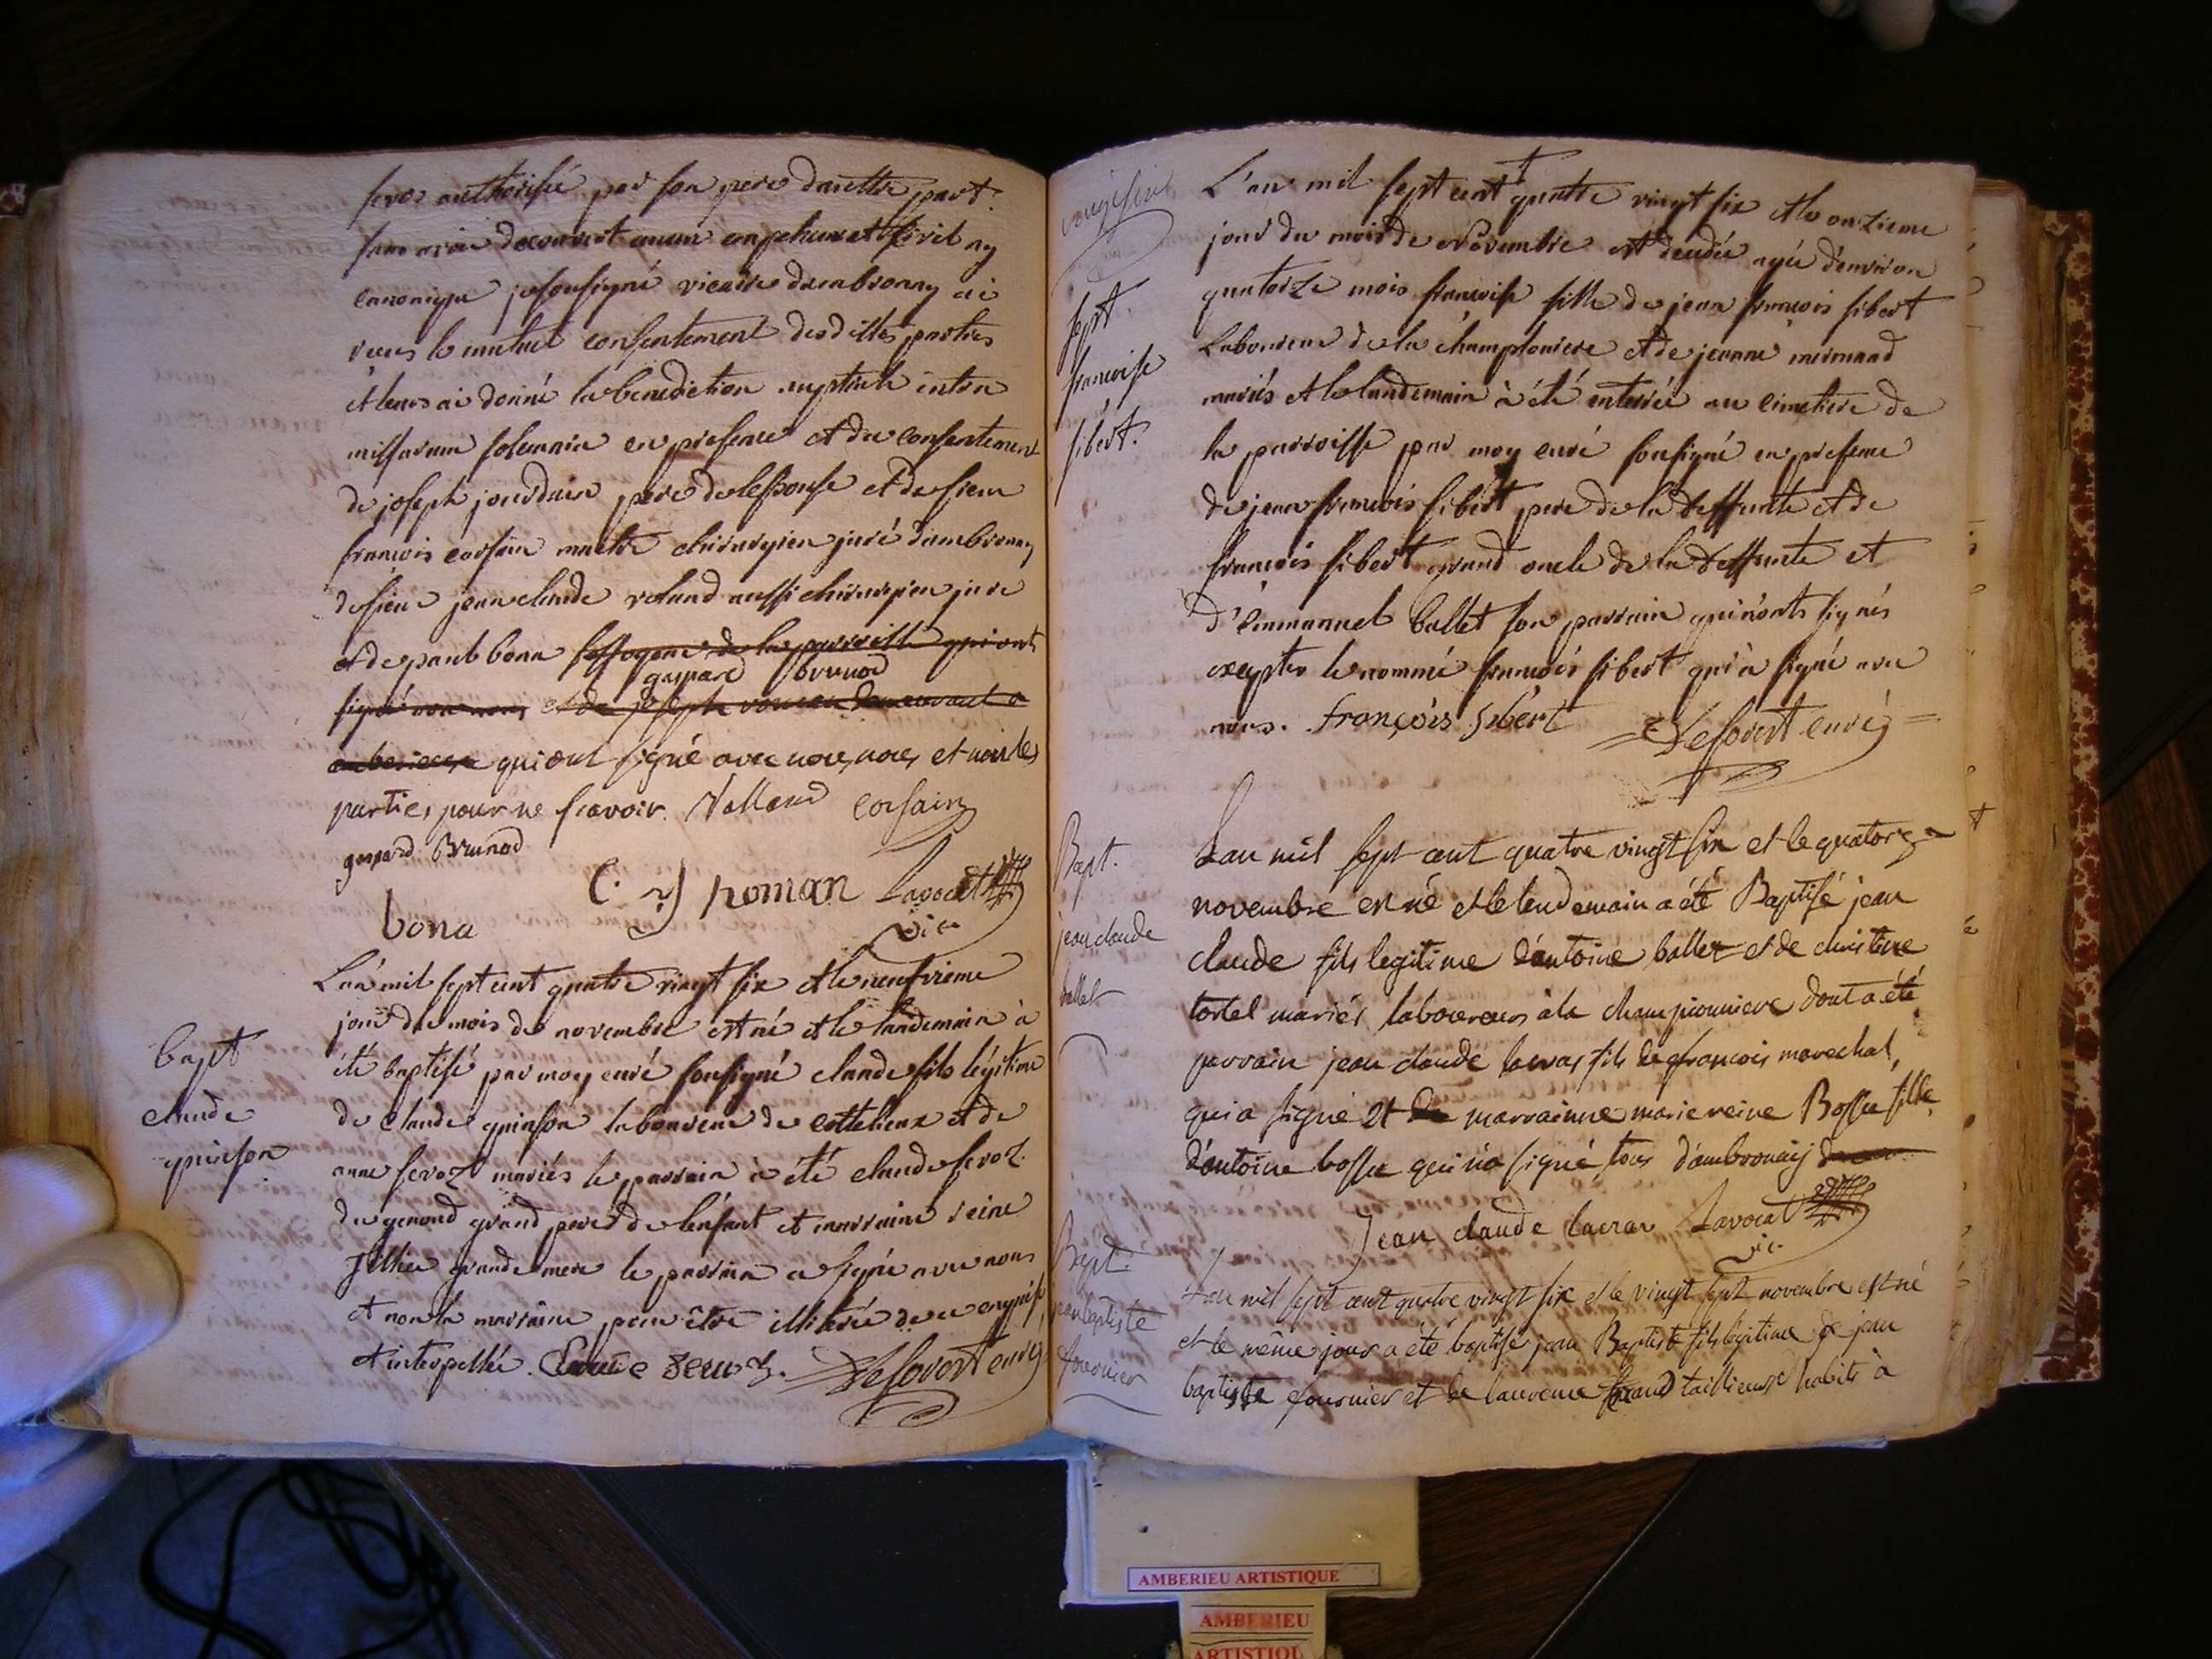 feroz authorisée par son pere d'auttre part.
sans avoir decouvert aucun empchement civil ny
canonique je sousigné vicaire d'ambronay ai
receus le mutuel consentement desdittes parties
et leurs ai donné la benediction nuptiale intra
missarum solemnia en presence et du consentement
de joseph jourdain pere de l'epouse et de sieur
francois corsain maitre chirurgien juré d'ambronay
de sieur jean claude roland aussi chirurgien juré
et de paul bona de la parroisse qui ont
gaspard brunod
signé avec nous et de joseph demeurant a
amberieux qui ont signé avec nous, et non les
parties, pour ne scavoir. Valland corsain
gaspard Brunod
C. roman Lavocat
bona vic.
L'an mil sept cent quatre vingt six et le neufvieme
jour du mois de novembre est né et le landemain à
été baptisé par moy curé sousigné claude fils légitime
bapt
claude
quinson
de claude quinson laboureur de cottelieux et de
anne feroz mariés le parrain à été claude feroz
du genoud grand pere de l'enfant et marraine reine
Jillier grande mere le parrain a signé avec nous
et non la marraine pour être illiterée de ce enquise
et interpellée. Claude feroz. Deforert curé
L'an mil sept cent quatre vingt six et le onzieme
jour du mois de Novembre est decedée agée d'environ
quatorze mois francoise fille de jean francois sibert
sept.
francoise
sibert.
Laboureur de la championiere et de jeanne mermand
mariés et le landemain à été enterrée au cimetiere de
la parroisse par moy curé sousigné en presence
de jean francois sibert pere de la deffunte et de
francois sibert grand oncle de la deffunte et
d'emmanuel ballet son parrain qui n'onts signés
exepter le nommé francois sibert qui à signé avec
nous. françois sibert Deforert curé
Bapt.
jean claude
ballet
L'an mil sept cent quatre vingt six et le quatorze
novembre est né et le lendemain a été Baptisé jean
claude fils legitime d'antoine ballet et de christine
tortel mariés laboureurs à la championniere dont a été
parrain jean claude lacras fils de francois marechal,
qui a signé et de marrainne marie reine Bossu fille
d'antoine bossu qui n'a signé, tous d'ambronaij
jean claude lacras Lavocat
vic.
Bapt.
jean baptiste
fournier
L'an mil sept cent quatre vingt six et le vingt sept novembre est né
et le même jour a été baptisé jean Baptiste fils légitime de jean
baptiste fournier et de laurence taillieuse habits à
AMBERIEU ARTISTIQUE
AMBERIEU